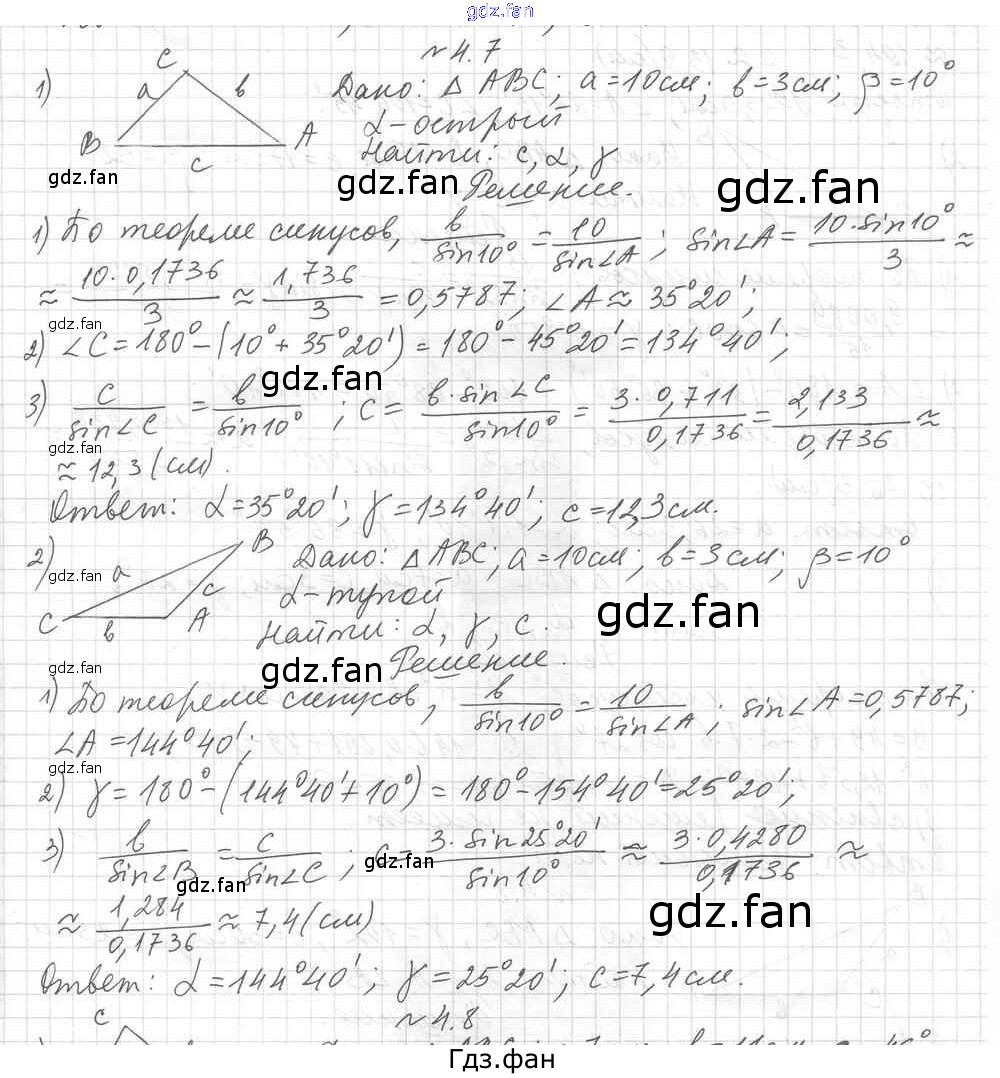 gdz.fan
№ 4.7
1) C a в B A c Дано: △ ABC; a=10см; в=3см; β=10°
α-острый
Найти: c, α, γ
gdz.fan gdz.fan Решение. gdz.fan
1) По теореме синусов, в/sin10° = 10/sin∠A ; sin∠A = 10·sin10°/3 ≈
≈ 10·0,1736/3 ≈ 1,736/3 = 0,5787; ∠A ≈ 35°20';
gdz.fan
2) ∠C = 180° - (10° + 35°20') = 180° - 45°20' = 134°40';
gdz.fan
3) c/sin∠C = в/sin10° ; c = в·sin∠C/sin10° = 3·0,711/0,1736 = 2,133/0,1736 ≈
gdz.fan
≈ 12,3 (см).
Ответ: α=35°20'; γ=134°40'; c=12,3см.
2) C a B c A в Дано: △ ABC; a=10см; в=3см; β=10°
gdz.fan
α-тупой gdz.fan
Найти: α, γ, c.
gdz.fan gdz.fan Решение.
1) По теореме синусов, в/sin10° = 10/sin∠A ; sin∠A=0,5787;
∠A = 144°40';
gdz.fan
2) γ = 180° - (144°40' + 10°) = 180° - 154°40' = 25°20';
3) в/sin∠B = c/sin∠C ; c = 3·sin25°20'/sin10° ≈ 3·0,4280/0,1736 ≈
gdz.fan gdz.fan
≈ 1,284/0,1736 ≈ 7,4 (см) gdz.fan
Ответ: α=144°40'; γ=25°20'; c=7,4см.
№ 4.8
C
Гдз.фан